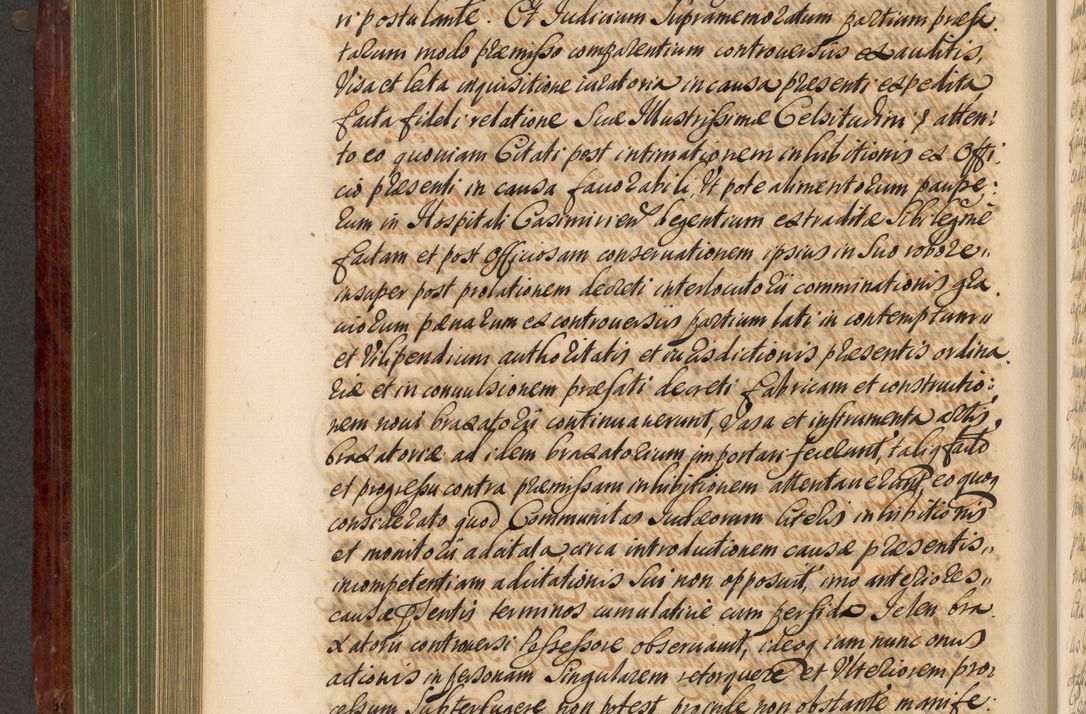 ri postulante. Et Judicium Supramemoratum partium præfa
tarum modo præmisso comparentium controversiis exauditis,
Visa et lecta inquisitione iuratoria in causa præsenti expedita
facta fideli relatione Suæ Illustrissimæ Celsitudini & atten:
to eo quoniam Citati post intimationem inhibitionis ex Offi
cio præsenti in causa favorabili, Ut pote alimentorum paupe:
rum in Hospitali Casimirien degentium extraditæ Sibi legme
factam et post Officiosam conservationem ipsius in Suo robore,,
insuper post prolationem decreti interlocutorii comminationis gra
viorum pænarum ex controversiis partium lati in contemptum,,
et Vilipendium authoritatis et iurisdictionis præsentis ordina
riæ et in convulsionem præfati decreti fabricam et constructio:
nem novi braxatorii continuaverunt, Vasa et instrumenta artis
braxatoriæ ad idem braxatorium importari fecerunt, taliq facto
et progressu contra præmissam inhibitionem attentaverunt, eo quoq
considerato quod Communitas Judæorum literis inhibitionis
et monitorii adcitata, circa introductionem causæ præsentis,,
incompetentiam adcitationis Sui non opposuit, imo anteriores,,
causæ Psentis terminos cumulative cum perfido Jelen bra
xatorii controversi Possessore observavit, ideoq iam nunc onus
actionis in personam Singularem retorquere et Ulteriorem pro:
cessum Subterfugere non potest, proinde non obstante manife: